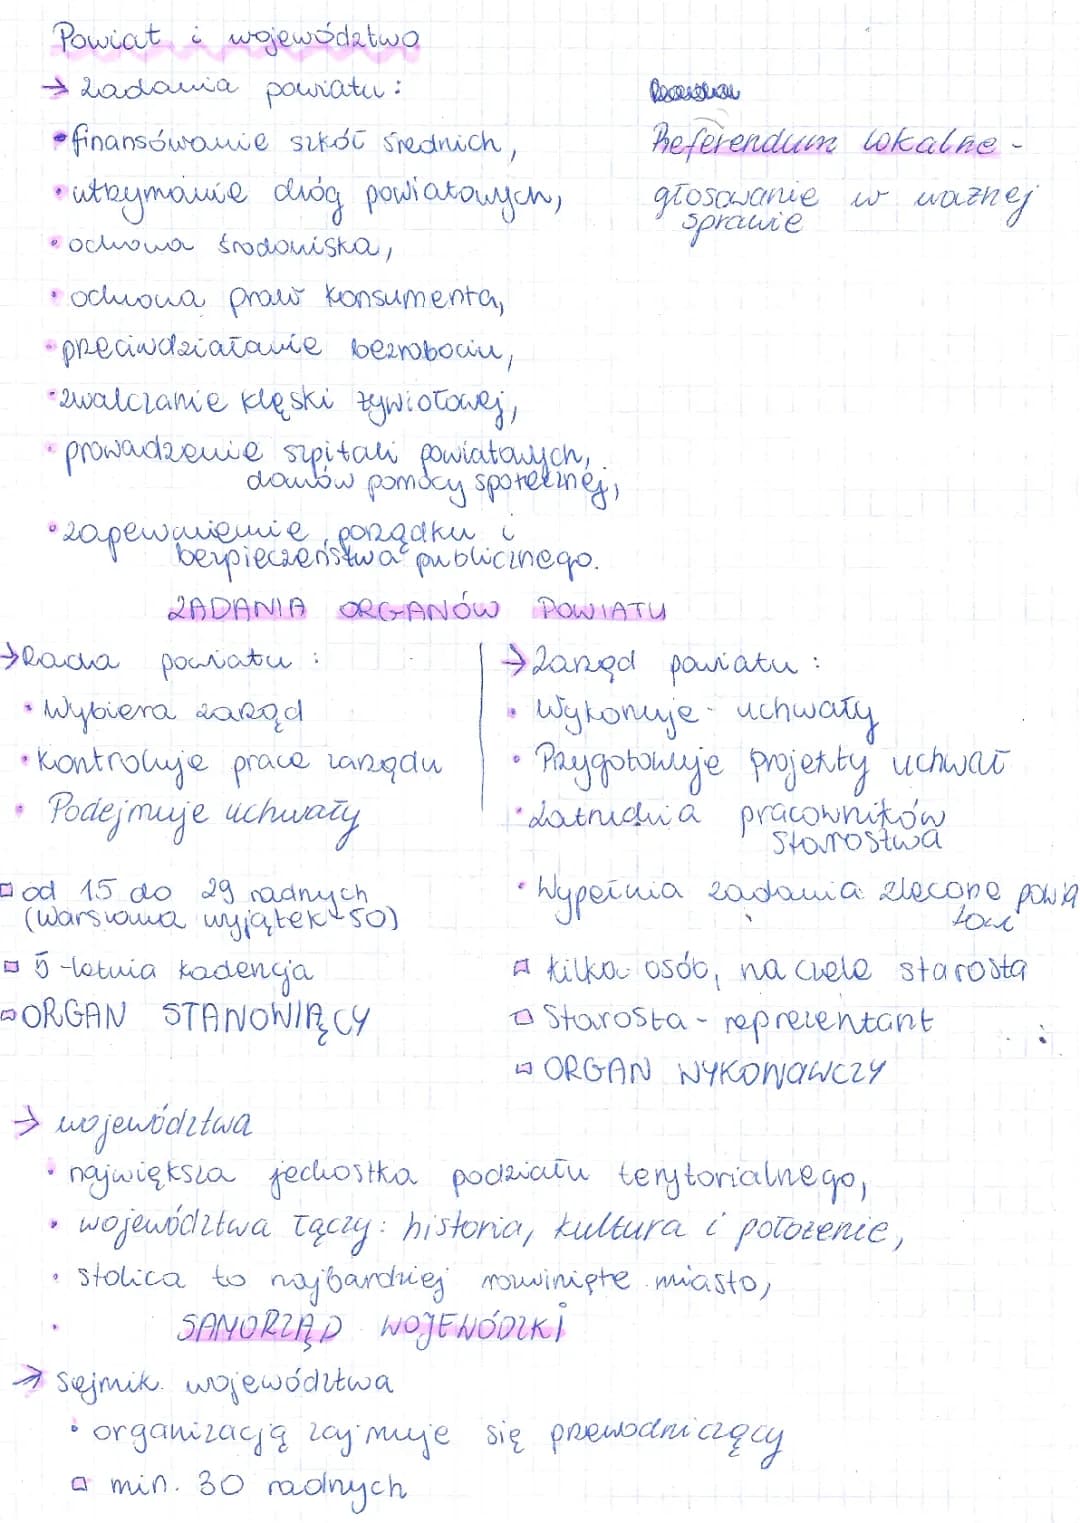 Powiat i województwo
→ zadania powiatu:
• finansówanie szkół średnich,
• utrzymanie dróg powiatowych,
• ochrona środowiska,
• ochrona praw konsumenta,
• przeciwdziałanie bezrobociu,
• zwalczanie klęski żywiołowej,
• prowadzenie szpitali powiatowych,
domów pomocy społecznej,
• zapewnienie porządku i
bezpieczeństwa publicznego.
Referendum lokalne -
głosowanie w ważnej
sprawie
ZADANIA ORGANÓW POWIATU
→ Rada powiatu:
• Wybiera zarząd
• Kontroluje pracę zarządu
• Podejmuje uchwały
□ od 15 do 29 radnych
(Warszawa wyjątek - 50)
□ 5-letnia kadencja
□ ORGAN STANOWIĄCY
→ Zarząd powiatu:
• Wykonuje uchwały
• Przygotowuje projekty uchwał
• Zatrudnia pracowników
starostwa
• Wypełnia zadania zlecone powia
towi
□ kilka osób, na czele starosta
□ Starosta - reprezentant
□ ORGAN WYKONAWCZY
→ województwa
• największa jednostka podziału terytorialnego,
• województwa łączy: historia, kultura i położenie,
• stolica to najbardziej rozwinięte miasto,
SAMORZĄD WOJEWÓDZKI
→ Sejmik województwa
• organizacją zajmuje się przewodniczący
□ min. 30 radnych